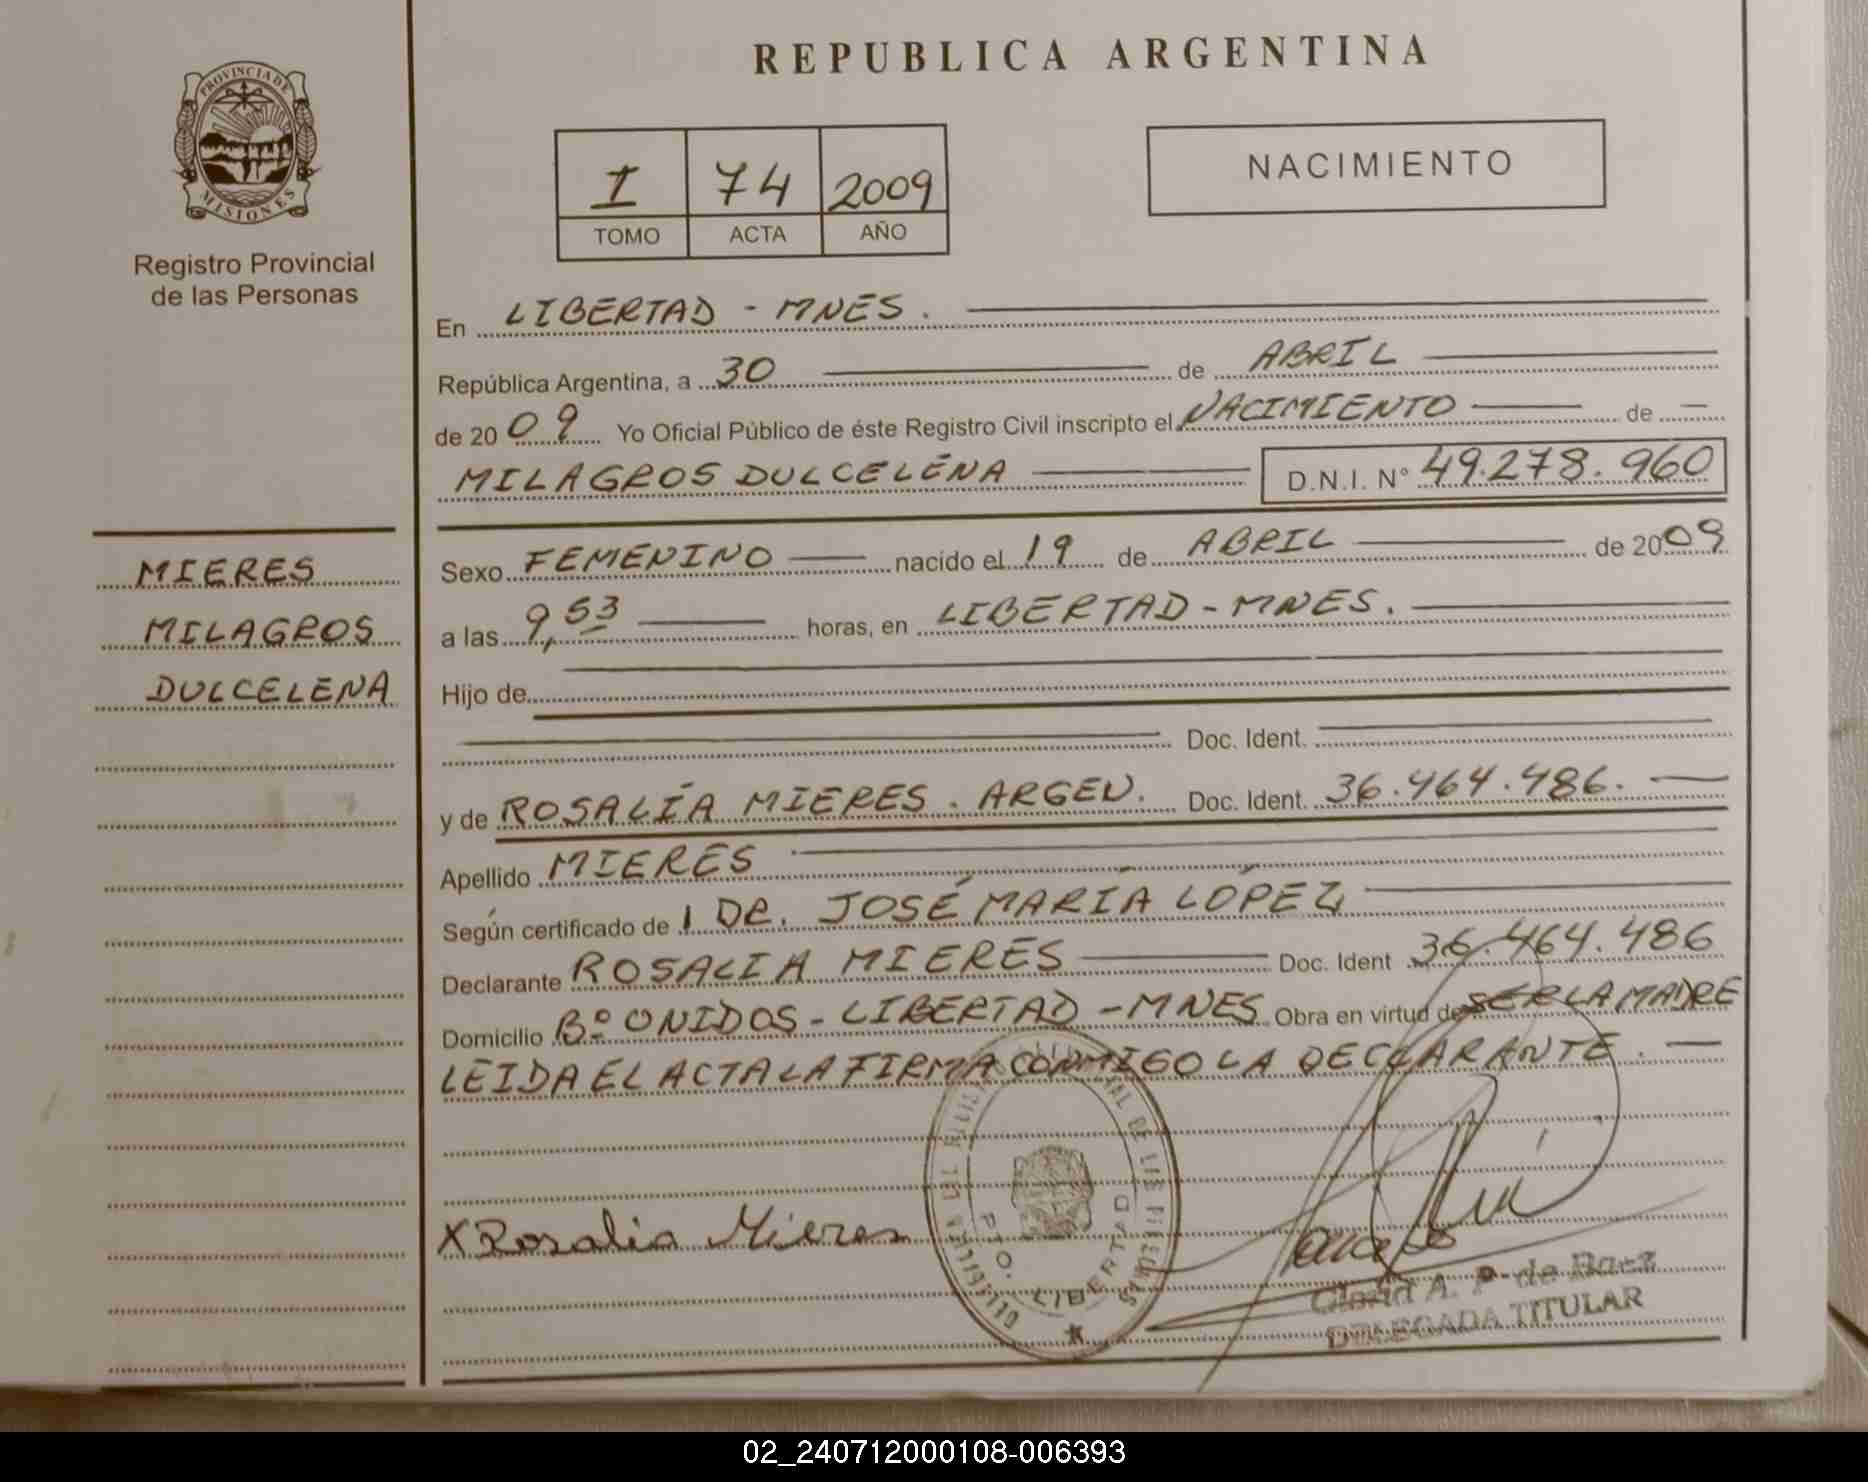 REPUBLICA ARGENTINA
PROVINCIA DE
MISIONES
Registro Provincial
de las Personas
I 74 2009
TOMO ACTA AÑO
NACIMIENTO
En LIBERTAD - MNES.
República Argentina, a 30 de ABRIL
de 2009 Yo Oficial Público de éste Registro Civil inscripto el NACIMIENTO de —
MILAGROS DULCELENA D.N.I. N° 49.278.960
MIERES
MILAGROS
DULCELENA
Sexo FEMENINO nacido el 19 de ABRIL de 2009
a las 9,53 horas, en LIBERTAD - MNES.
Hijo de
Doc. Ident.
y de ROSALÍA MIERES. ARGEN. Doc. Ident. 36.464.486.
Apellido MIERES
Según certificado de 1 DR. JOSÉ MARÍA LÓPEZ
Declarante ROSALIA MIERES Doc. Ident 36.464.486
Domicilio Bº UNIDOS - LIBERTAD - MNES Obra en virtud de SER LA MADRE
LEIDA EL ACTA LA FIRMA CONMIGO LA DECLARANTE.
X Rosalia Mieres
PTO. LIBERTAD
A. P. de Baez
DELEGADA TITULAR
02_240712000108-006393